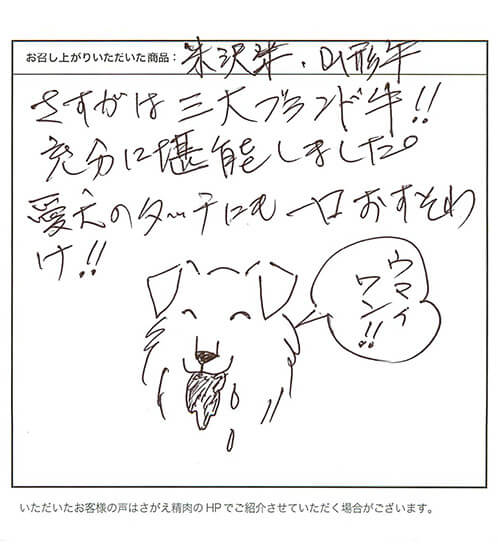 お召し上がりいただいた商品： 米沢牛・山形牛
さすがは三大ブランド牛!!
充分に堪能しました。
愛犬のタッチにも一口おすそわ
け!!
ウマイ
ワン!!
いただいたお客様の声はさがえ精肉のHPでご紹介させていただく場合がございます。